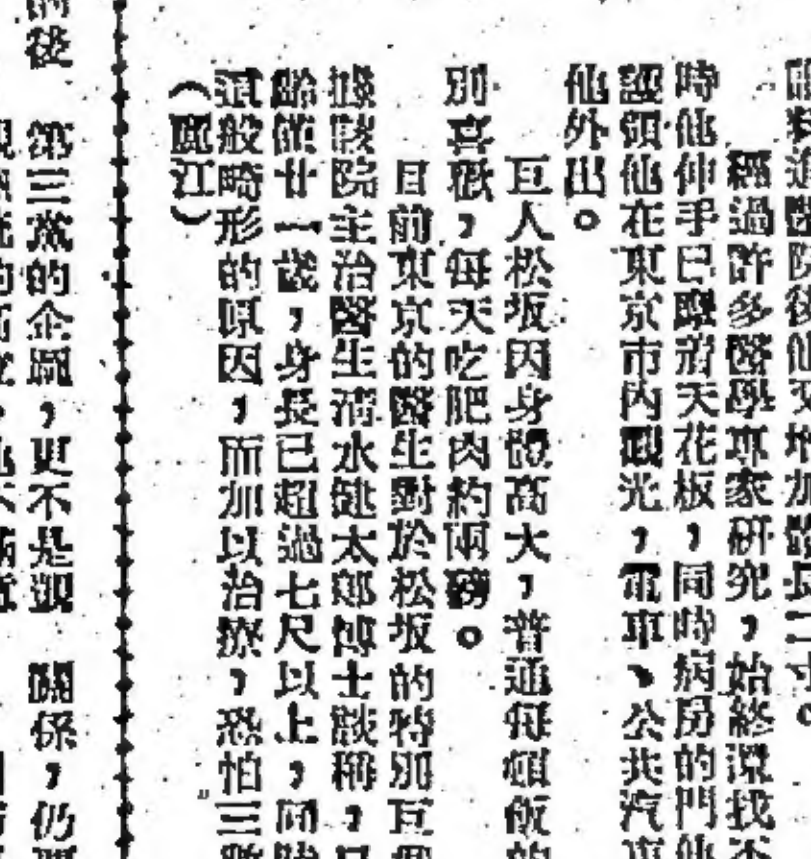 經過許多醫學專家研究，始終還找不
時他伸手已摩着天花板，同時病房的門他
護領他在東京市內觀光，電車、公共汽車
他外出。
巨人松坂因身體高大，普通每頓飯的
別喜歡，每天吃肥肉約兩磅。
目前東京的醫生對於松坂的特別巨
據該院主治醫生清水健太郎博士談稱，
齡僅廿一歲，身長已超過七尺以上，同時
這般畸形的原因，而加以治療，恐怕三數
（鹿江）
第三黨的企圖，更不是 關係，仍
後